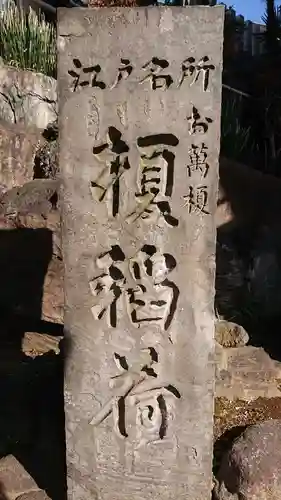 江戸名所
お萬榎
榎稲荷